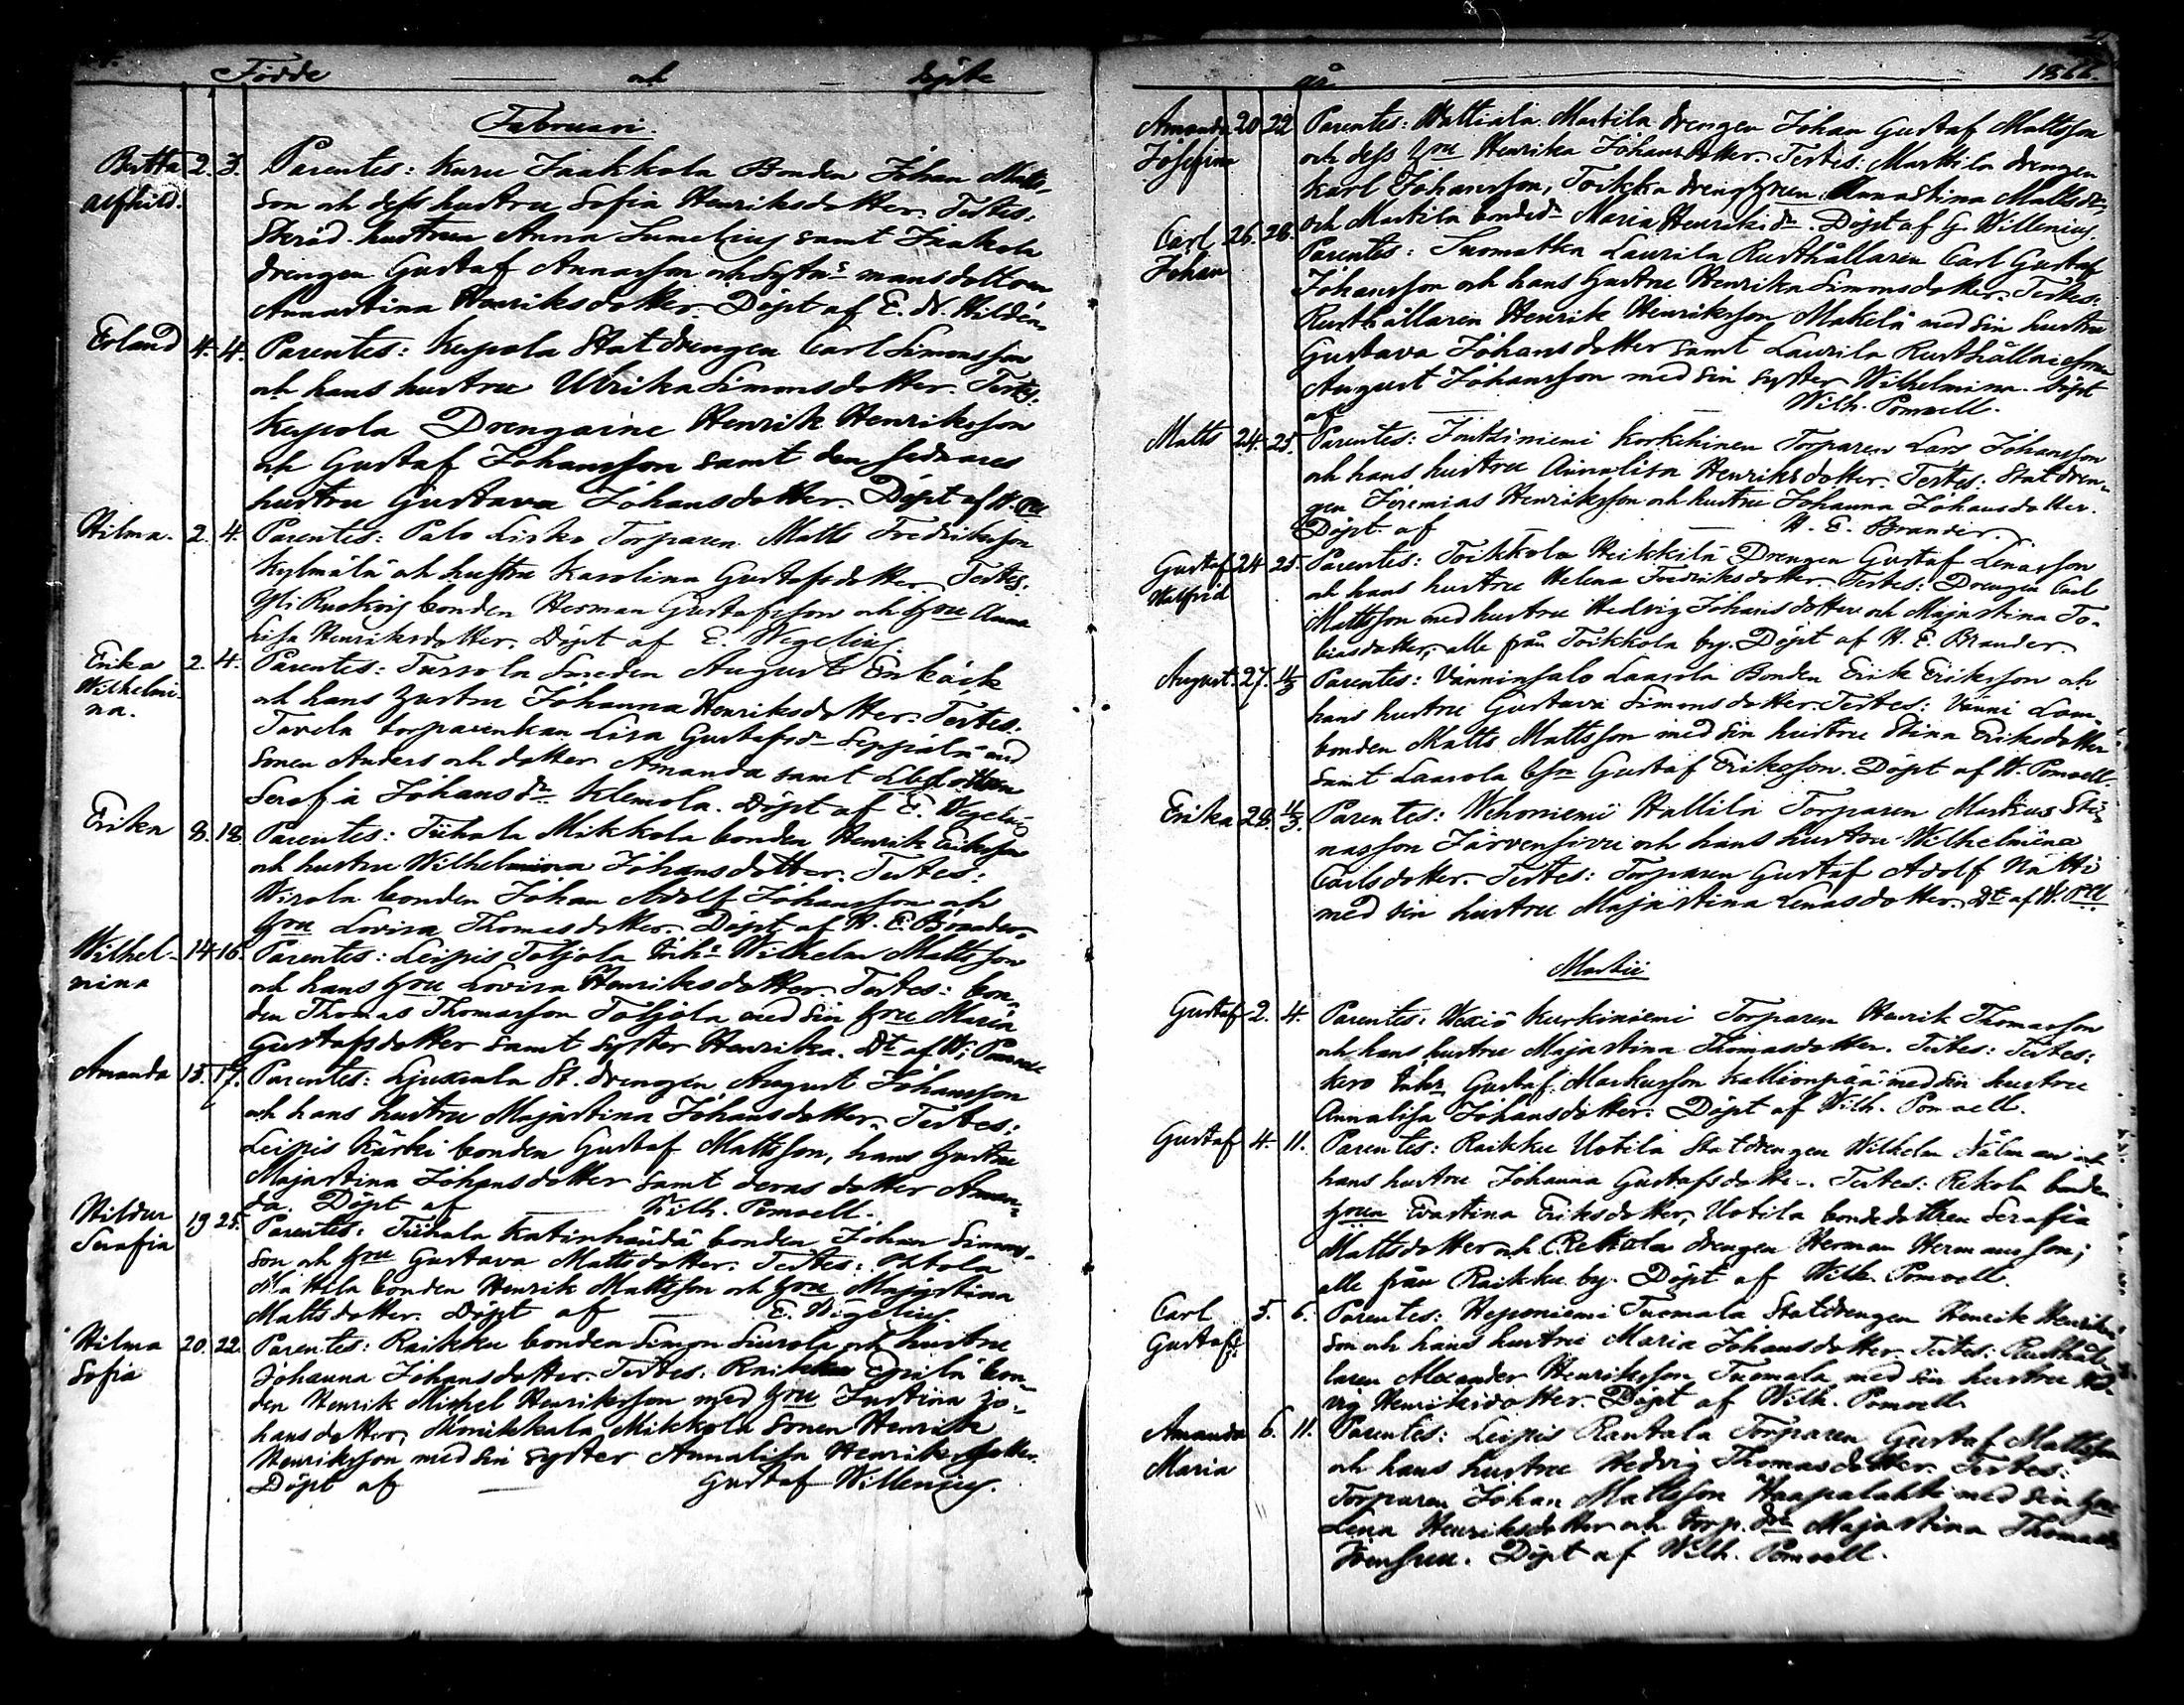 Födde och döpte
Februari.
Berta 2. 3. Parentes: Kuru Jaakkola Bonden Johan Matts-
Alfhild. son och dess hustru Sofia Henriksdotter. Testes:
hustrun Anna Sumelius samt Jaakola
drengen Gustaf Annasson och mansdottren
Annastina Henriksdotter. Döpt af E. N. Hildén.
Erland 4. 4. Parentes: Kupola Statdrengen Carl Simonsson
och hans hustru Ulrika Simonsdotter. Testes:
Kupola Drengarne Henrik Henriksson
och Gustaf Johansson samt den sednares
hustru Gustava Johansdotter. Döpt af W. Pll
Hilma. 2. 4. Parentes: Palo Lisko Torparen Matts Fredriksson
Kylmälä och hustru Karolina Gustafsdotter. Testes:
Yli bonden Herman Gustafsson och hru Anna
Lisa Henriksdotter. Döpt af E. Wegelius.
Erika 2. 4. Parentes: Smeden August Enbäck
Wilhelmi- och hans hustru Johanna Henriksdotter. Testes:
na. Tavela torparenkan Lisa Gustafsdr Seppälä med
sonen Anders och dotter Amanda samt
Serafia Johansdr Klemola. Döpt af E. Wegelius
Erika 8. 18. Parentes: Tiihala Mikkola bonden Henrik Eriksson
och hustru Wilhelmina Johansdotter. Testes:
Wirola bonden Johan Adolf Johansson och
hru Lovisa Thomasdotter. Döpt af H. E. Brander.
Wilhel- 14. 16. Parentes: Leipis Toljola Inhs Wilhelm Mattsson
mina och hans hru Lovisa Henriksdotter. Testes: bon-
den Thomas Thomasson Toljola med sin hru Maria
Gustafsdotter samt syster Henrika. Dt af W. Pomoell
Amanda 15. 17. Parentes: Liuksiala St. drengen August Johansson
och hans hustru Majastina Johansdotter. Testes:
Leipis Kärki bonden Gustaf Mattsson, hans hustru
Majastina Johansdotter samt deras dotter Aman-
da. Döpt af Wilh. Pomoell.
Hildur 19 25. Parentes: Tiihala Katinhäntä bonden Johan Simons-
Serafia son och hru Gustava Mattsdotter. Testes: Ohtola
Ala Hela bonden Henrik Mattsson och hru Majastina
Mattsdotter. Döpt af E. Wegelius.
Hilma 20. 22. Parentes: Raikku bonden Simon Siurola och hustru
Sofia Johanna Johansdotter. Testes: Raikku Eerilä bon-
den Henrik Michel Henriksson med hru Justiina Jo-
hansdotter, Mikkola sonen Henrik
Henriksson med sin syster Annalisa Henriksdotter.
Döpt af Gustaf Willenius.
år 1866.
Amanda 20 22 Parentes: Wattiala Marttila drengen Johan Gustaf Mattsson
Josefina och dess hru Henrika Johansdotter. Testes: Marttila drengen
Karl Johansson, Toikka dreng hrun Annastina Mattsdr,
och Marttila bondedr Maria Henriksdr. Döpt af G. Willenius
Carl 26. 28. Parentes: Suomatka Laurila Rusthållaren Carl Gustaf
Johan Johansson och hans hustru Henrika Simonsdotter. Testes:
Rusthållaren Henrik Henriksson Mäkelä med sin hustru
Gustava Johansdotter samt Laurila Rusthållaresonen
August Johansson med sin syster Wilhelmina. Döpt
af Wilh. Pomoell.
Matts 24. 25. Parentes: Jontziniemi Torparen Lars Johansson
och hans hustru Annalisa Henriksdotter. Testes: Statdren-
gen Jeremias Henriksson och hustru Johanna Johansdotter.
Döpt af H. E. Brander.
Gustaf 24 25. Parentes: Toikkola Heikkilä Drengen Gustaf Lenasson
Walfrid och hans hustru Helena Fredriksdotter. Testes: Drengen Carl
Mattsson med hustru Hedvig Johansdotter och Majastina To-
biasdotter, alla från Toikkola by. Döpt af H. E. Brander.
August. 27. 11/3 Parentes: Vänninsalo Laarola Bonden Erik Eriksson och
hans hustru Gustava Simonsdotter. Testes: Vänni
bonden Matts Mattsson med sin hustru Stina Eriksdotter
samt Laarola bsn Gustaf Eriksson. Döpt af W. Pomoell.
Erika 28. 11/3. Parentes: Wehoniemi Hallila Torparen Markus Sti-
nasson Järvensivu och hans hustru Wilhelmina
Carlsdotter. Testes: Torparen Gustaf Adolf Nätti
med sin hustru Majastina Lenasdotter. Dt af W. Pll.
Martii
Gustaf 2. 4. Parentes: Wexiö Kurkiniemi Torparen Henrik Thomasson
och hans hustru Majastina Thomasdotter. Testes:
Inhs Gustaf Markusson Kallionpää med sin hustru
Annalisa Johansdotter. Döpt af Wilh. Pomoell.
Gustaf 4. 11. Parentes: Raikku Uotila Statdrengen Wilhelm Dålman och
hans hustru Johanna Gustafsdotter. Testes: Rekola bonden
hrun Evastina Eriksdotter, Uotila bondedottren Serafia
Mattsdotter och Rekola drengen Herman Hermansson;
alla från Raikku by. Döpt af Wilh. Pomoell.
Carl 5. 6. Parentes: Heponiemi Tuomala Statdrengen Henrik Henriks-
Gustaf. son och hans hustru Maria Johansdotter. Testes: Rusthål-
laren Alexander Henriksson Tuomala med sin hustru Hed-
vig Henriksdotter. Döpt af Wilh. Pomoell
Amanda 6. 11. Parentes: Leipis Rantala Torparen Gustaf Mattsson
Maria och hans hustru Hedvig Thomasdotter. Testes:
Torparen Johan Mattsson Haapalahti med sin hru
Lena Henriksdotter och torp. dr Majastina Thomasdr
Döpt af Wilh. Pomoell.